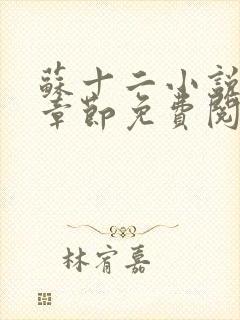 蘇十二小說
章節免費閱
林宥嘉